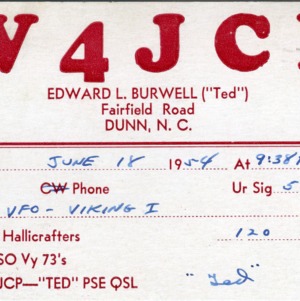 W4JC
EDWARD L. BURWELL ("Ted")
Fairfield Road
DUNN, N. C.
JUNE 18 1954 At 9:38
CW Phone Ur Sig 5
VFO - VIKING I
Hallicrafters 120
SO Vy 73's
JCP—"TED" PSE QSL "Ted"